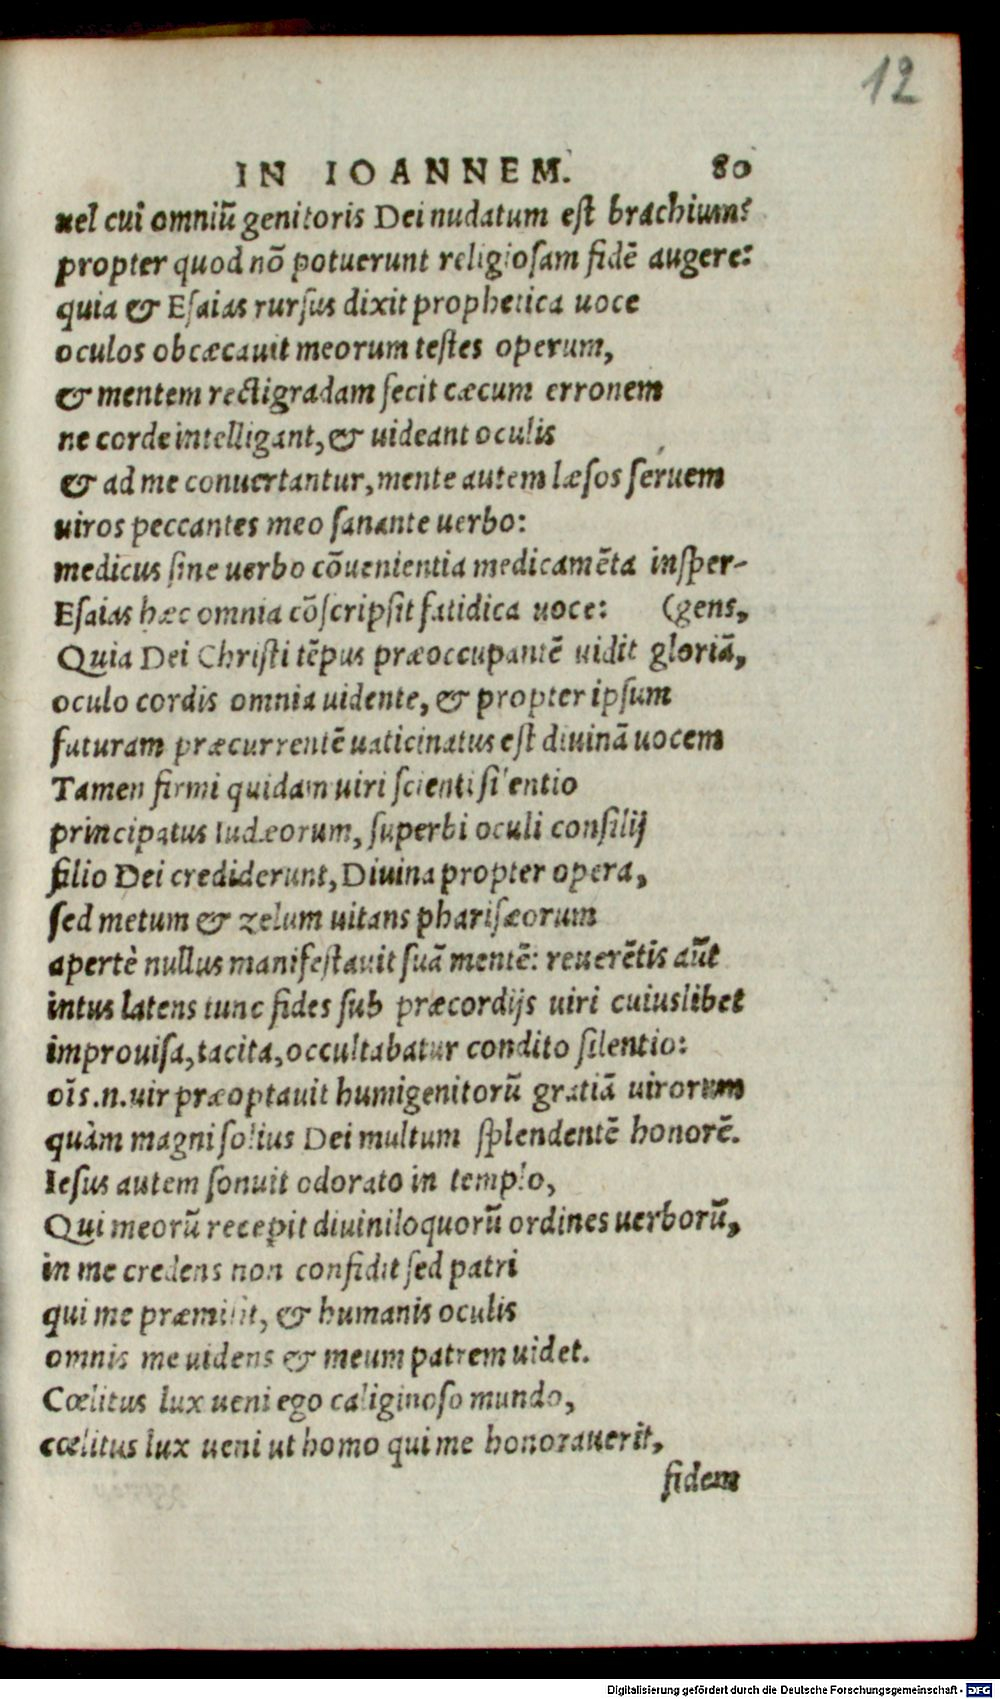 12
IN IOANNEM. 80
uel cui omniū genitoris Dei nudatum est brachium?
propter quod nō potuerunt religiosam fidē augere:
quia & Esaias rursus dixit prophetica uoce
oculos obcæcauit meorum testes operum,
& mentem rectigradam fecit cæcum erronem
ne corde intelligant, & uideant oculis
& ad me conuertantur, mente autem læsos seruem
uiros peccantes meo sanante uerbo:
medicus sine uerbo cōuenientia medicamēta insper-
Esaias hæc omnia cōscripsit fatidica uoce: (gens,
Quia Dei Christi tēpus præoccupantē uidit gloriā,
oculo cordis omnia uidente, & propter ipsum
futuram præcurrentē uaticinatus est diuinā uocem
Tamen firmi quidam uiri scienti silentio
principatus Iudæorum, superbi oculi consilij
filio Dei crediderunt, Diuina propter opera,
sed metum & zelum uitans pharisæorum
apertè nullus manifestauit suā mentē: reuerētis aūt
intus latens tunc fides sub præcordijs uiri cuiuslibet
improuisa, tacita, occultabatur condito silentio:
oīs .n. uir præoptauit humigenitorū gratiā uirorum
quàm magni solius Dei multum splendentē honorē.
Iesus autem sonuit odorato in templo,
Qui meorū recepit diuiniloquorū ordines uerborū,
in me credens non confidit sed patri
qui me præmisit, & humanis oculis
omnis me uidens & meum patrem uidet.
Cœlitus lux ueni ego caliginoso mundo,
cœlitus lux ueni ut homo qui me honorauerit,
fidem
Digitalisierung gefördert durch die Deutsche Forschungsgemeinschaft - DFG